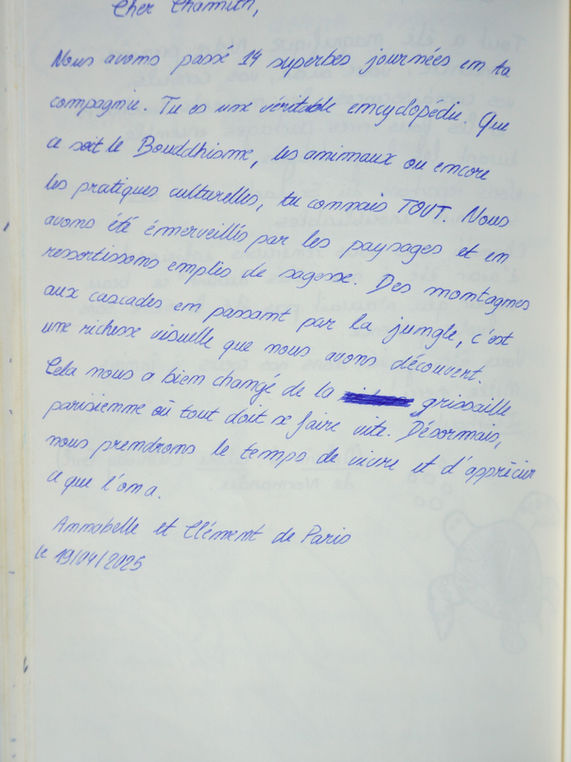 Cher Chamith,
Nous avons passé 14 superbes journées en ta
compagnie. Tu es une véritable encyclopédie. Que
ce soit le Bouddhisme, les animaux ou encore
les pratiques culturelles, tu connais TOUT. Nous
avons été émerveillés par les paysages et en
ressortissons emplis de sagesse. Des montagnes
aux cascades en passant par la jungle, c'est
une richesse visuelle que nous avons découvert.
Cela nous a bien changé de la grissaille
parisienne où tout doit se faire vite. Désormais,
nous prendrons le temps de vivre et d'apprécier
ce que l'on a.
Annabelle et Clément de Paris
le 19/04/2025